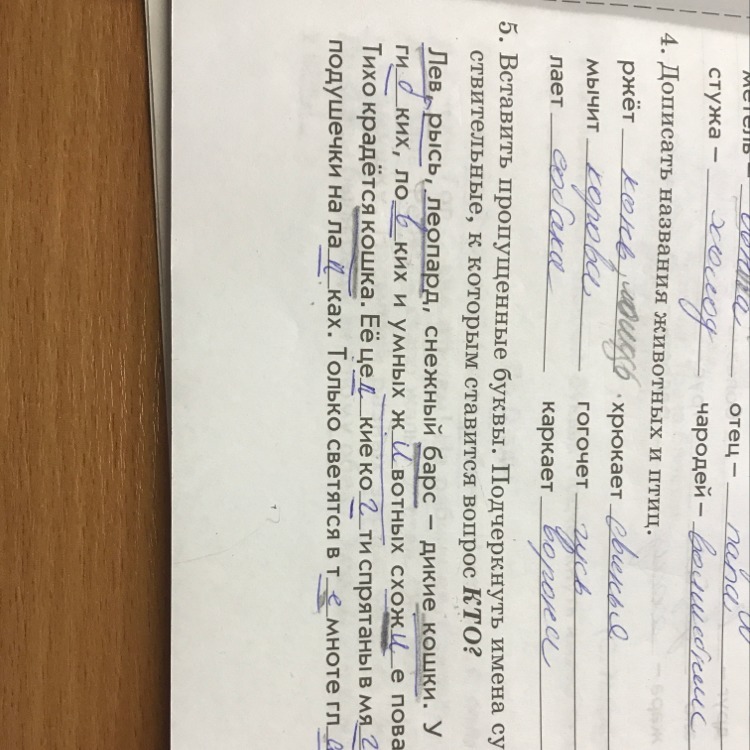 метель –
стужа – холод
отец – папа
чародей – волшебник
4. Дописать названия животных и птиц.
ржёт конь, лошадь
хрюкает свинья
мычит корова
гогочет гусь
лает собака
каркает ворона
5. Вставить пропущенные буквы. Подчеркнуть имена су
ствительные, к которым ставится вопрос КТО?
Лев, рысь, леопард, снежный барс – дикие кошки. У
ги б ких, ло в ких и умных ж и вотных схож и е пова
Тихо крадётся кошка. Её це п кие ко г ти спрятаны в мя г
подушечки на ла п ках. Только светятся в т е мноте гл а